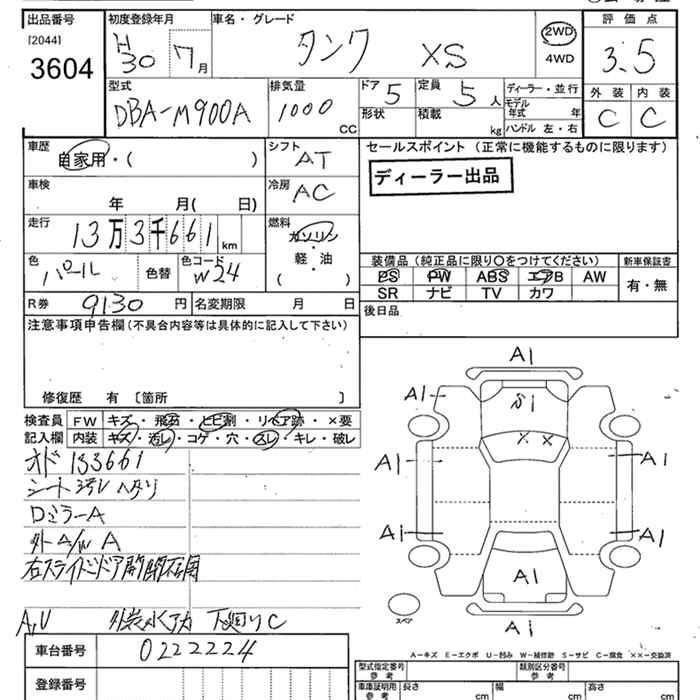 出品番号 初度登録年月 車名・グレード 評価点
[2044] 3604
H30 7月 タンク XS 2WD 4WD 3.5
型式 排気量 ドア 5 定員 5人 ディーラー・並行 外装 内装
DBA-M900A 1000 CC 形状 積載 kg モデル年式 年 ハンドル 左・右 C C
車歴 シフト セールスポイント (正常に機能するものに限ります)
自家用・( ) AT ディーラー出品
車検 冷房
年 月( 日) AC
走行 燃料
13万3千661km ガソリン・軽・油 ( )
色 パール 色替 色コード W24
装備品 (純正品に限り○をつけてください) 新車保証書
PS PW ABS エアB AW 有・無
SR ナビ TV カワ
R券 9130 円 名変期限 月 日 後日品
注意事項申告欄 (不具合内容等は具体的に記入して下さい)
修復歴 有 〔箇所 〕
検査員 FW キズ・飛石・ヒビ割・リペア跡・×要
記入欄 内装 キズ・汚レ・コゲ・穴・スレ・キレ・破レ
オド 133661
シート汚レ ハタリ
DミラーA
外A/W A
右スライドドア開閉不用
A,U 外装水アカ 下廻りC
A1
A1
S1
X X
A1 A1
A1 A1
A1
A1
スペア
A-キズ E-エクボ U-凹み W-補修跡 S-サビ C-腐食 ××-交換済
車台番号 0222224
型式指定番号 参考 類別区分番号 参考
登録番号 車庫証明用 参考 長さ cm 幅 cm 高さ cm